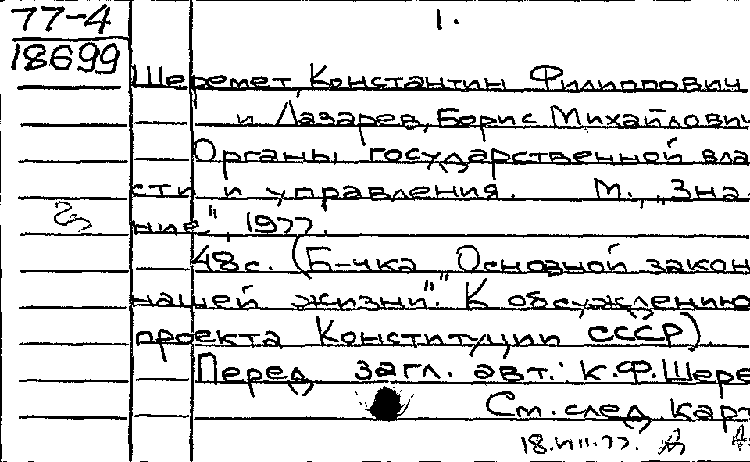 77-4 1.
18699
Шеремет, Константин Филиппович
и Лазарев, Борис Михайлович
Органы государственной вла
сти и управления. М., "Зна
ние", 1977.
48с. (Б-чка "Основной закон
нашей жизни". К обсуждению
проекта Конституции СССР).
Перед загл. авт.: К.Ф.Шере
См. след. карт
18.VIII.77.